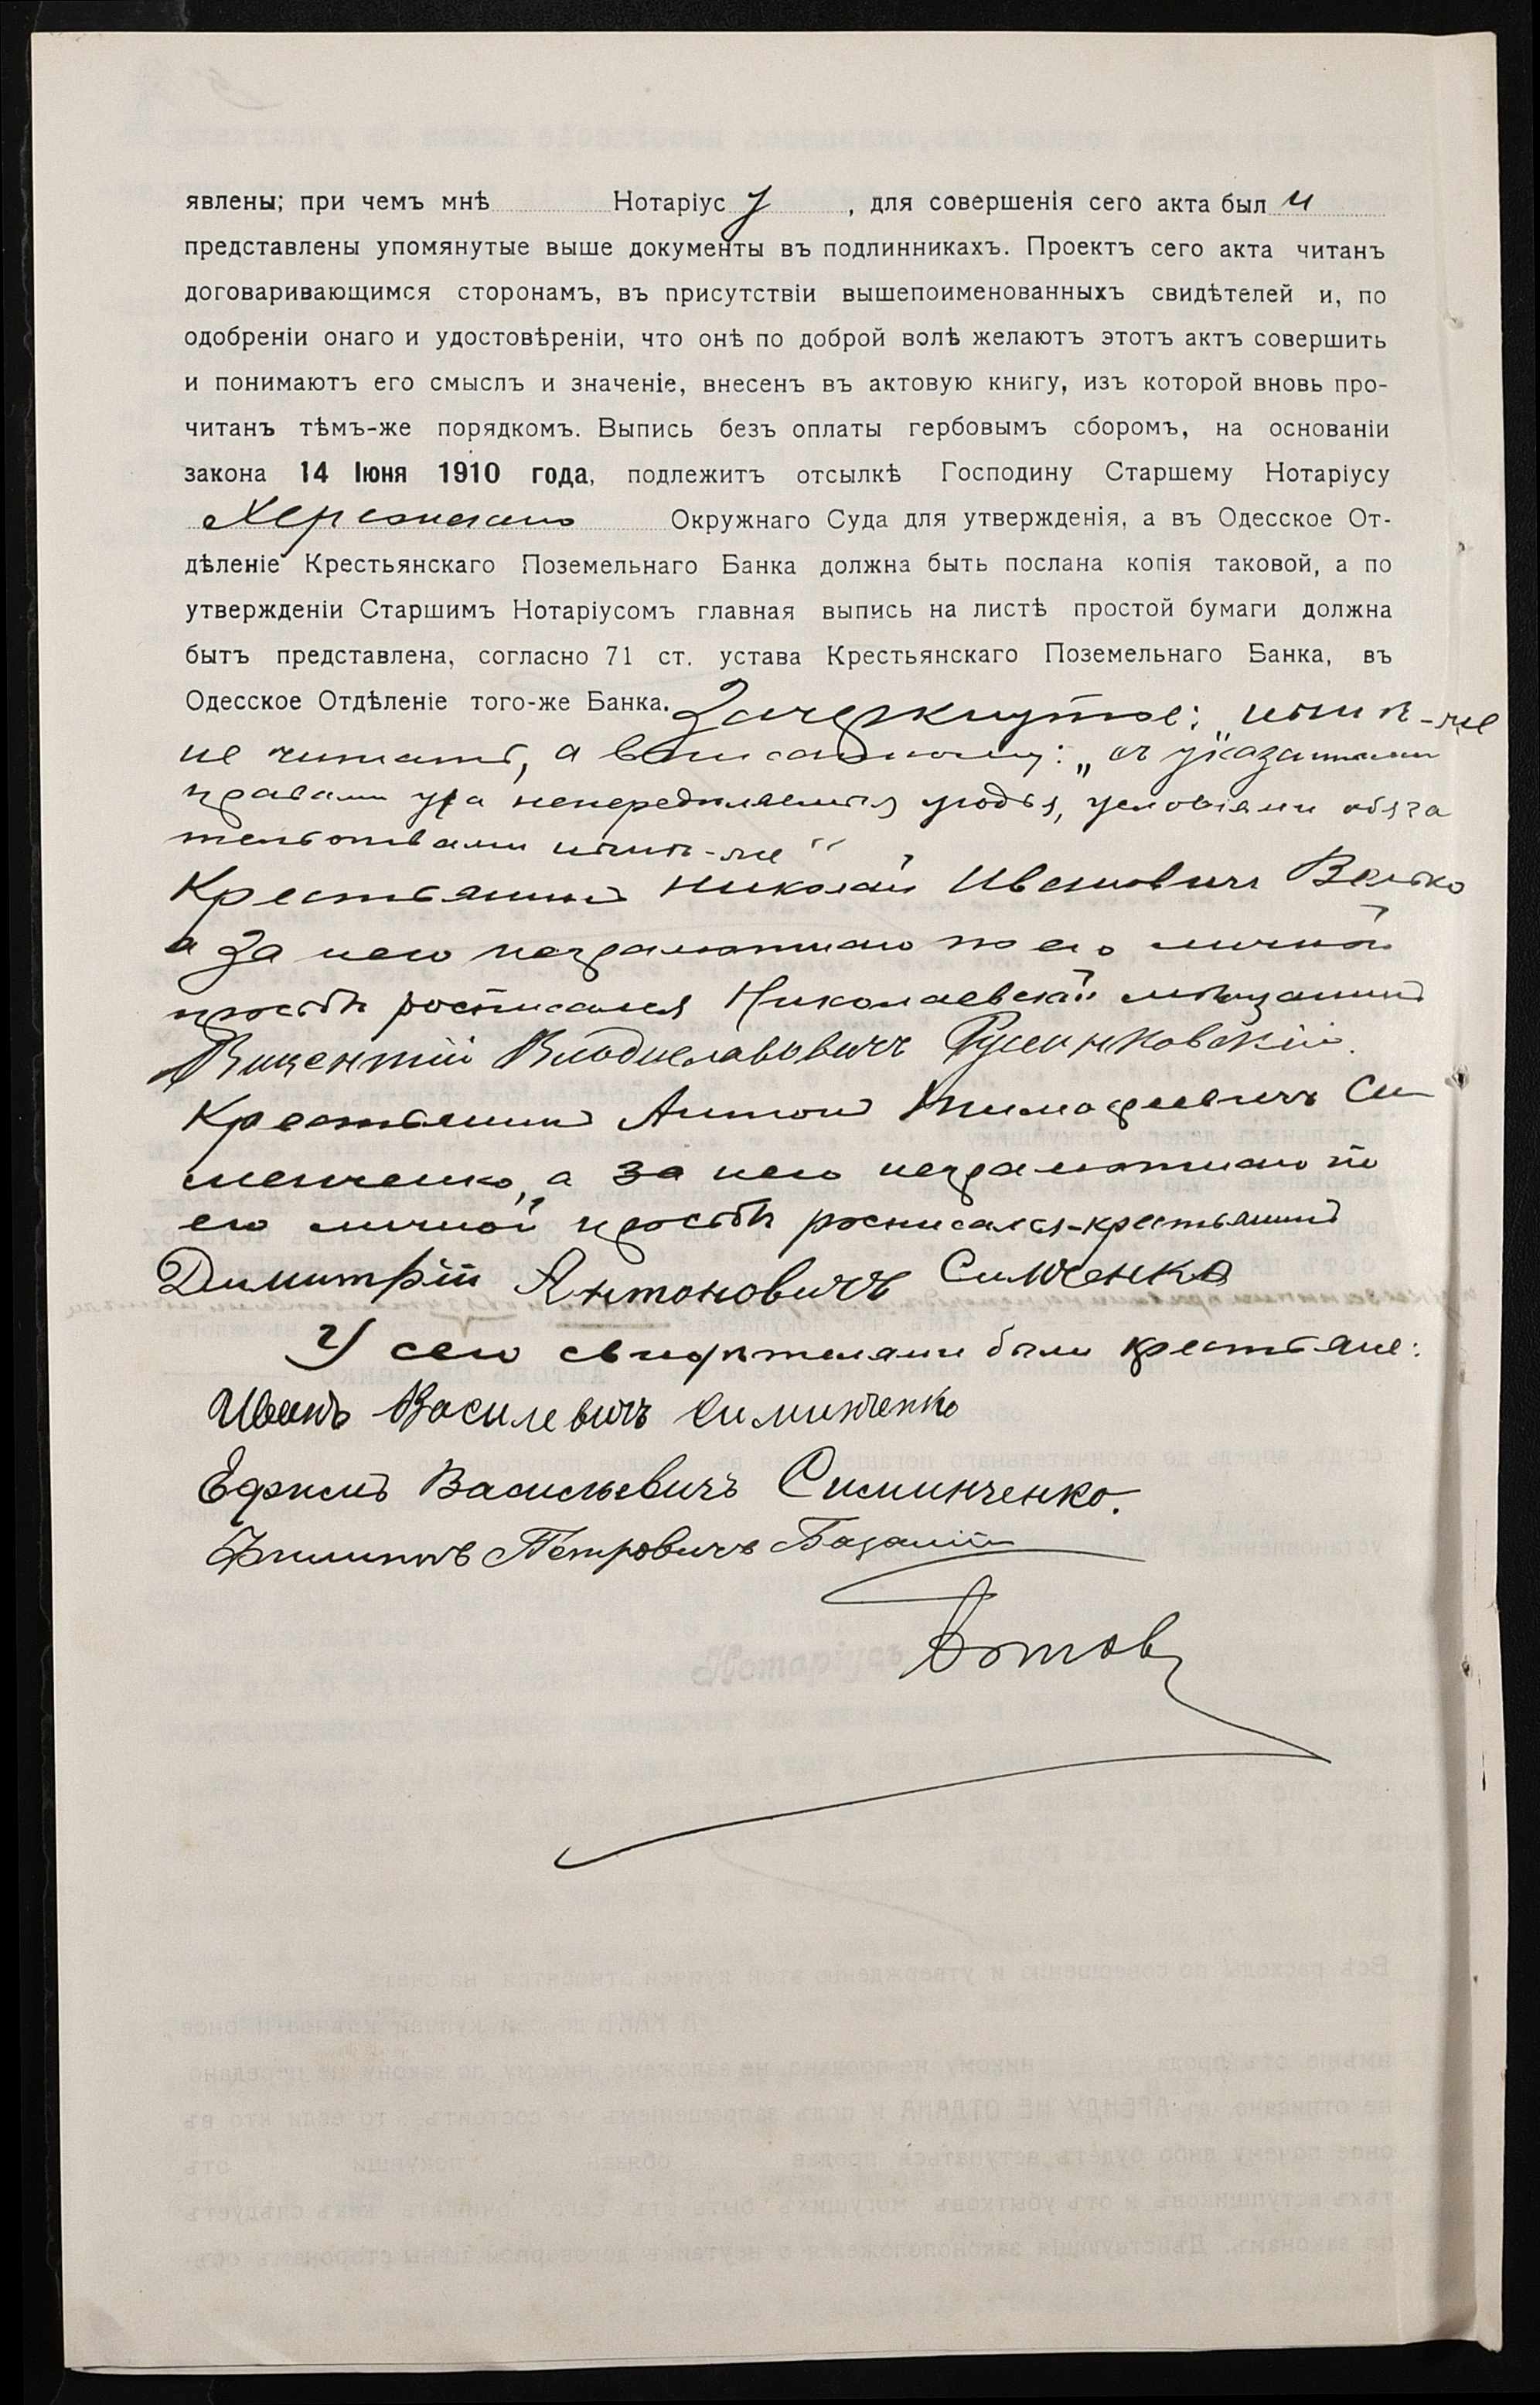 явлены; при чемъ мнѣ Нотаріус у, для совершенія сего акта был и
представлены упомянутые выше документы въ подлинникахъ. Проектъ сего акта читанъ
договаривающимся сторонамъ, въ присутствіи вышепоименованныхъ свидѣтелей и, по
одобреніи онаго и удостовѣреніи, что онѣ по доброй волѣ желаютъ этотъ актъ совершить
и понимаютъ его смыслъ и значеніе, внесенъ въ актовую книгу, изъ которой вновь про-
читанъ тѣмъ-же порядкомъ. Выпись безъ оплаты гербовымъ сборомъ, на основаніи
закона 14 Іюня 1910 года, подлежитъ отсылкѣ Господину Старшему Нотаріусу
Херсонскаго Окружнаго Суда для утвержденія, а въ Одесское От-
дѣленіе Крестьянскаго Поземельнаго Банка должна быть послана копія таковой, а по
утвержденіи Старшимъ Нотаріусомъ главная выпись на листѣ простой бумаги должна
бытъ представлена, согласно 71 ст. устава Крестьянскаго Поземельнаго Банка, въ
Одесское Отдѣленіе того-же Банка. Зачеркнутое:
не читать, а вписанному: „съ указанными
правами на угодья, условіями обяза
тельствами
Крестьянинъ Николай Ивановичъ
а за него неграмотнаго по его личной
просьбѣ росписался Николаевскій мѣщанинъ
Викентій Владиславовичъ
Крестьянинъ Антонъ Тимофеевичъ Си
менченко, а за него неграмотнаго по
его личной просьбѣ росписался-крестьянинъ
Димитрій Антоновичъ Симченко
У сего свидѣтелями были крестьяне:
Иванъ Василевичъ Симинченко
Ефимъ Васильевичъ Симинченко.
Филиппъ Петровичъ
Нотаріусъ